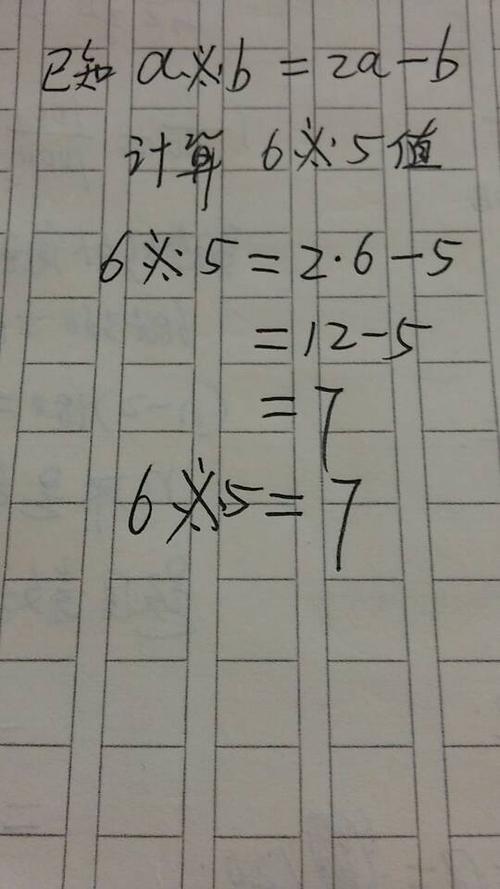 已知 a※b=2a-b
计算 6※5值
6※5=2·6-5
=12-5
=7
6※5=7